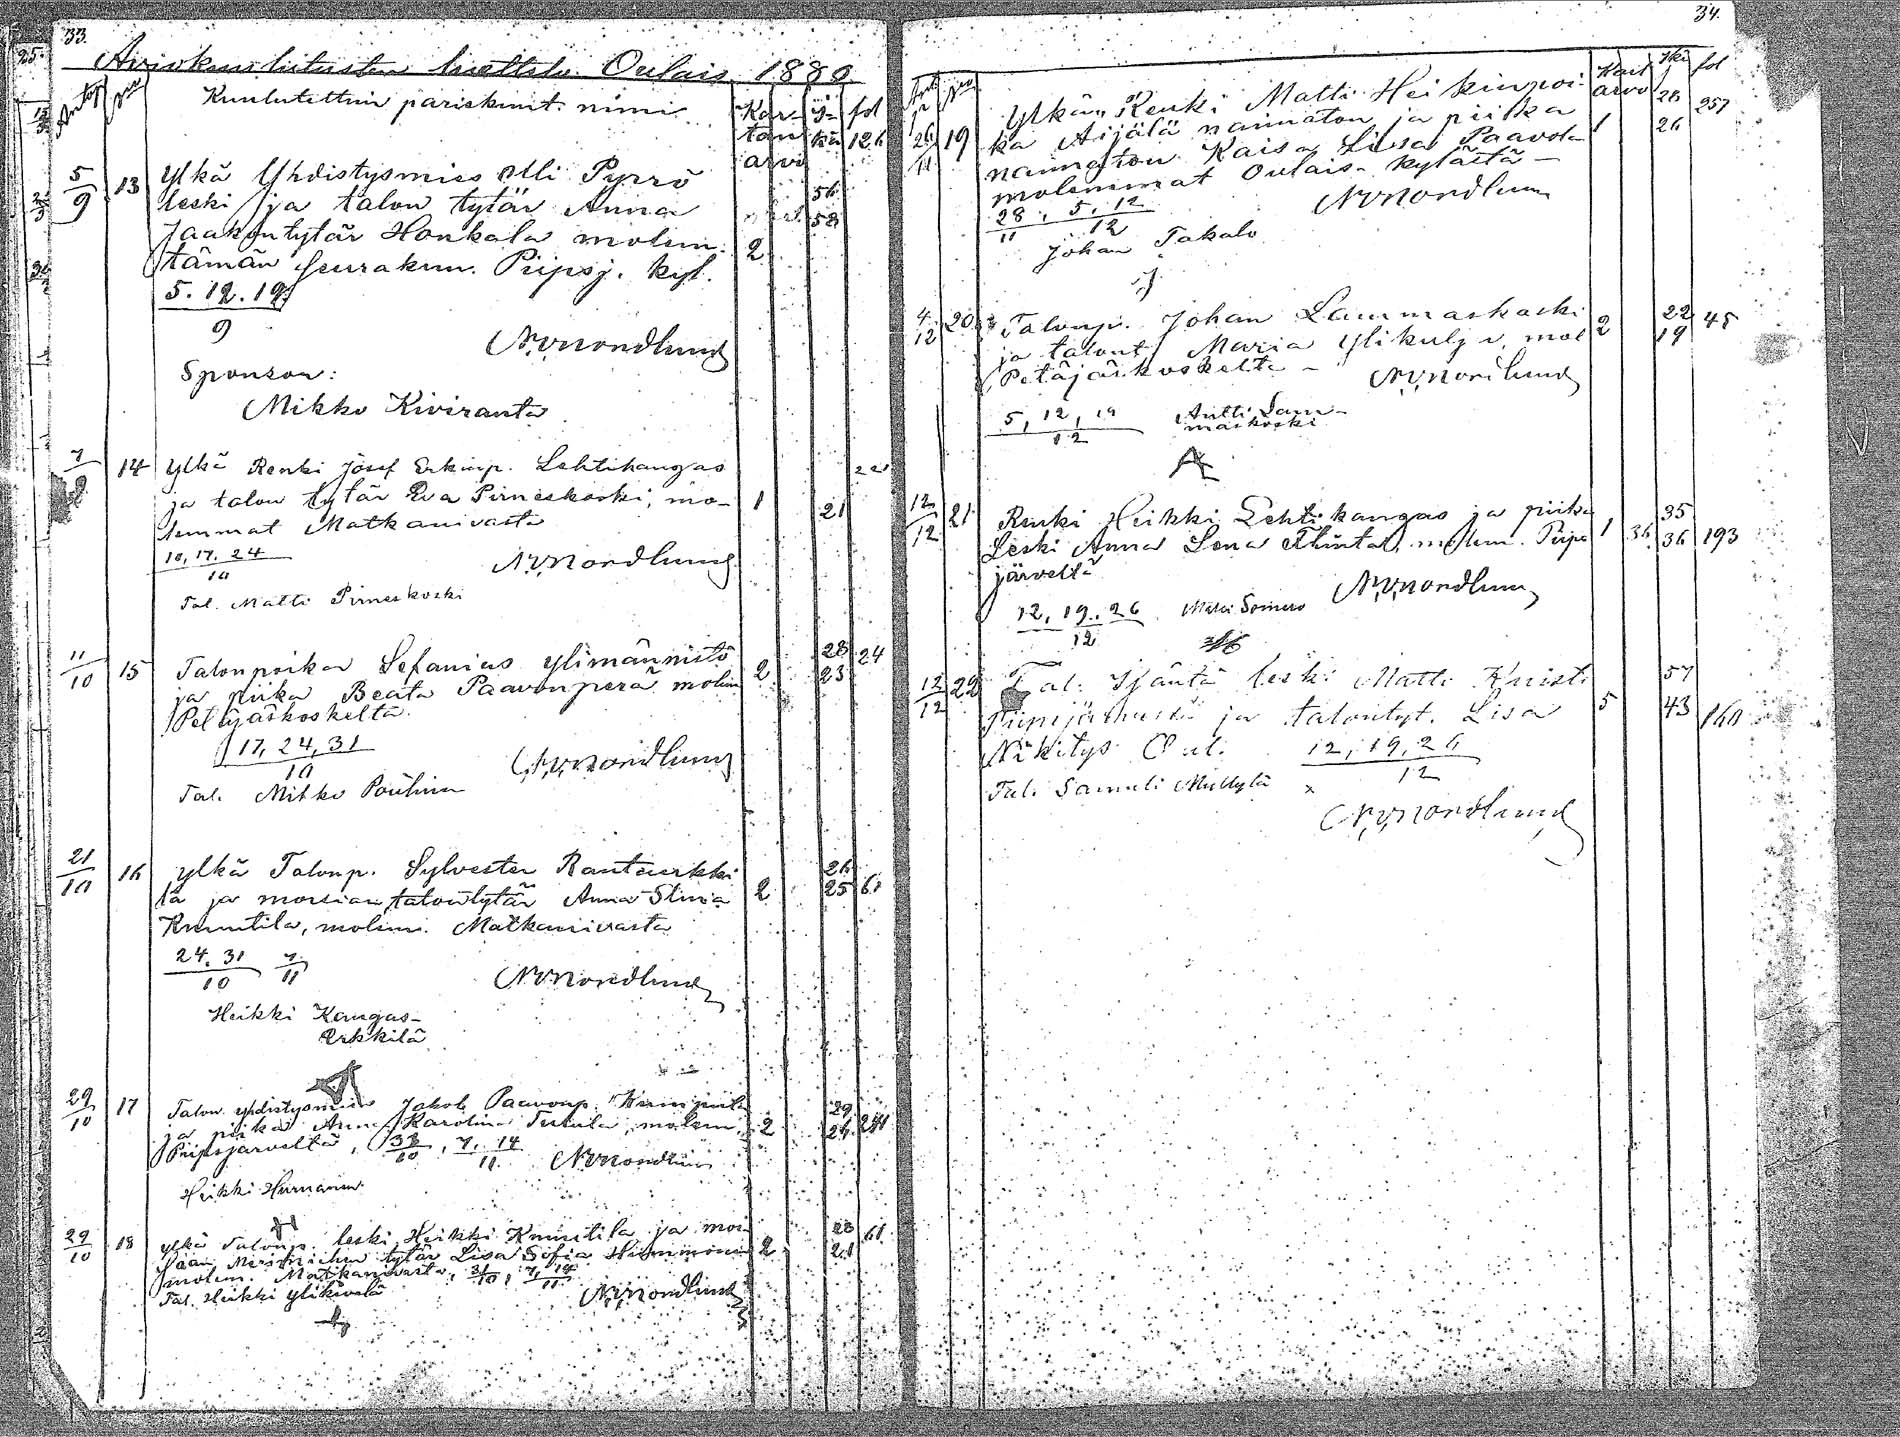 33.
Aviokuulutusten luettelo Oulais 1880
Kuulutettuin pariskunt. nimi
Kar- Ij- fol
tan kä 126
arvo
5/9 13 Ylkä Yhdistysmies Olli Pyrrö 56
leski ja talon tytär Anna 58
Jaakontytär Honkala molem. 2
tämän seurakun. Piipsj. kyl.
5. 12. 19.
9
N.v.Nordlund
Sponsor:
Mikko Kiviranta
7 14 Ylkä Renki Josef Erkinp. Lehtikangas
ja talon tytär Eva Pirneskoski, mo- 1 21
lemmat Matkanivasta
10, 17. 24
10
N.v.Nordlund
Tal. Matti Pirneskoski
11/10 15 Talonpoika Sefanias Ylimännistö 28 24
ja piika Beata Paavonperä molem 2 23
Petäjäskoskelta.
17, 24, 31
10
N.v.Nordlund
Tal. Mikko
21/10 16 Ylkä Talonp. Sylvester Rantaerkki 26
lä ja morsian talontytär Anna Stina 2 25 61
Knuutila, molem. Matkanivasta
24. 31 7
10 11
N.v.Nordlund
Heikki Kangas-
Erkkilä
29/10 17 Talon yhdistysmies Jakob Paavonp. 29
ja piika Anna Karolina molem. 2
Piipsjärveltä, 10, 7, 14
11 N.v.Nordlund
Heikki
29/10 18 Ylkä Talonp. leski Heikki Knuutila ja mor- 28 61
siän tytär Lisa Sofia 2 21
molem. Matkanivasta, 31/10, 7, 14/11
Tal. Heikki Ylikivelä N.v.Nordlund
34.
Ylkä Renki Matti Heikinpoi- 28 257
26/11 19 ka Aijälä naimaton ja piika 1 26
naimaton Kaisa Liisa Paavola
molemmat Oulais- kylästä –
28, 5, 12
11 12
N.v.Nordlund
Johan Takalo
4/12 20 Talonp. Johan Lammaskoski 2 22 45
ja talont. Maria Ylikulju, mol 19
Petäjäskoskelta –
N.v.Nordlund
5, 12, 19
12
Antti Lam-
maskoski
12/12 21 Renki Heikki Lehtikangas ja piika 35
Leski Anna Lena molem. Piips 1 36 36 193
järveltä
N.v.Nordlund
12, 19, 26 Matti Somero
12
12/12 22 Tal. Isäntä leski Matti 57
Piipsjärveltä ja talontyt. Lisa 5 43 160
Näkitys Oul. 12, 19, 26
12
Tal. Samuli Myllylä x
N.v.Nordlund